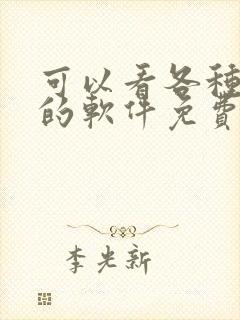 可以看各種
的軟件免費
李光新